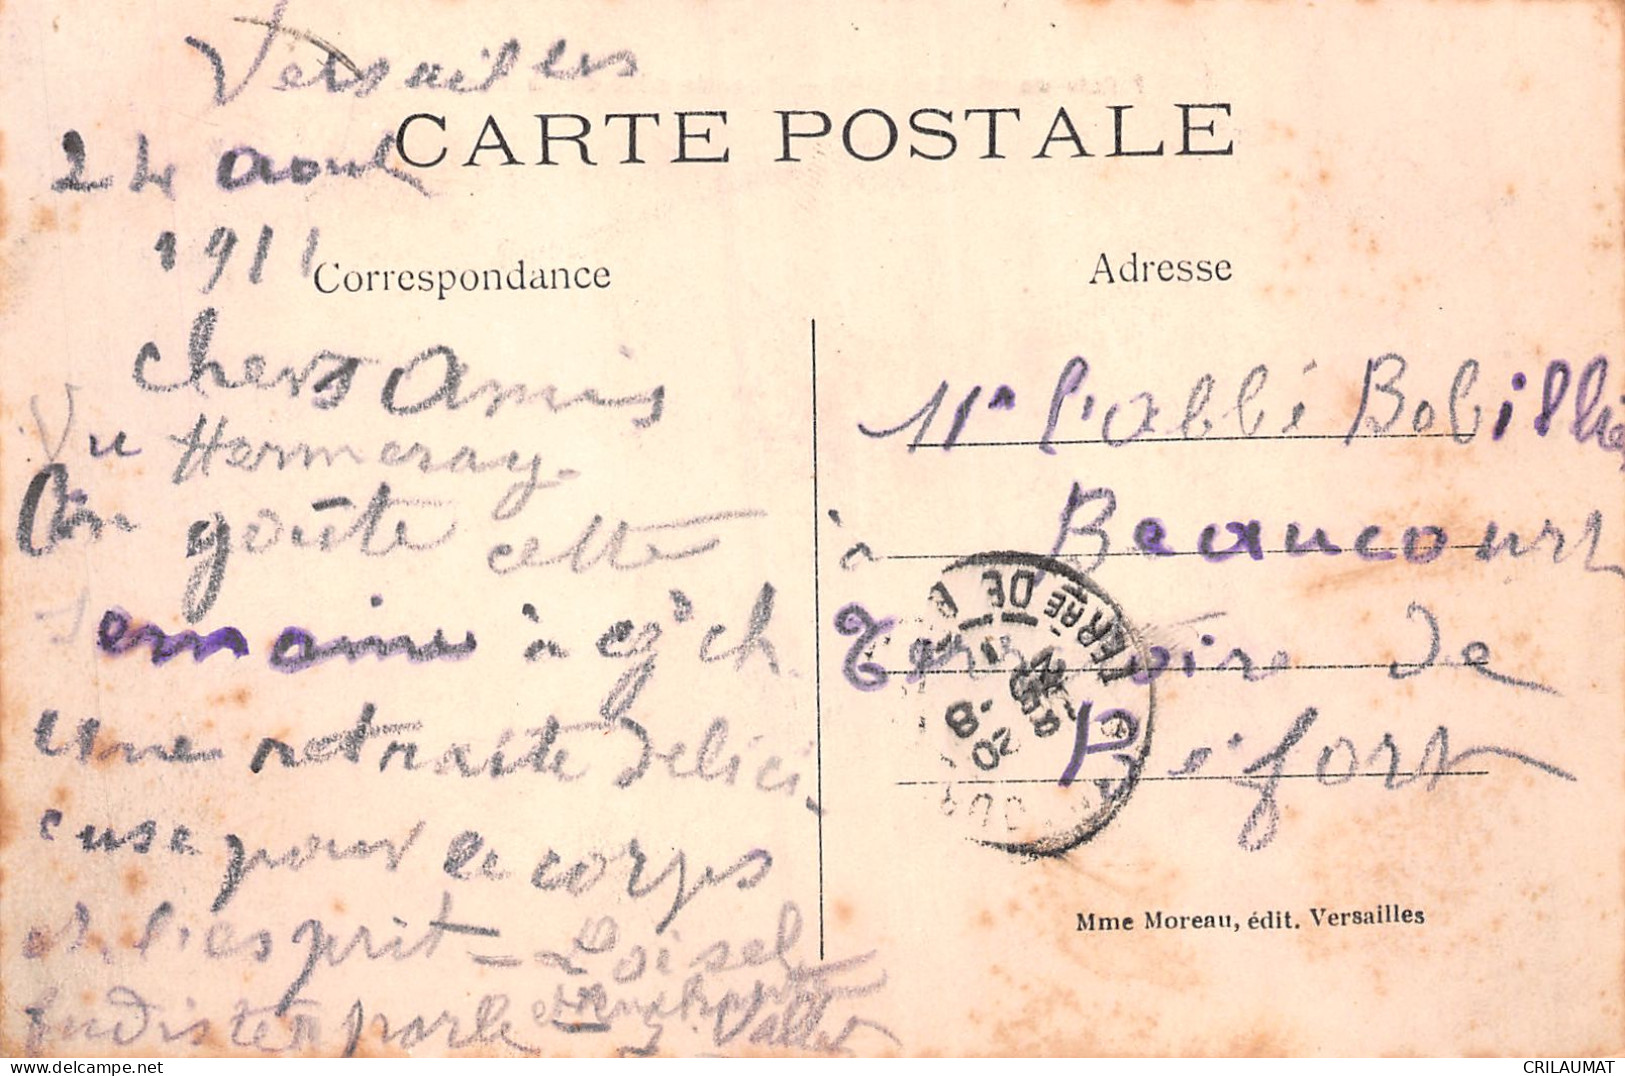 Versailles
24 aout
1911
CARTE POSTALE
Correspondance
Adresse
chers Amis
Vu Hermeray.
On goûte cette
semaine à
une retraite délici-
euse pour le corps
et l'esprit - Loisel
parle et Vallet
Mr l'abbé Bobillier
à Beaucourt
Territoire de
Belfort
TERRE DE B
20 -8
Mme Moreau, édit. Versailles
CRILAUMAT